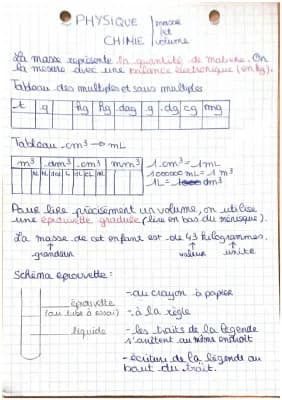 PHYSIQUE
CHIMIE
masse
et
volume
La masse représente la quantité de matière. On
la mesure avec une balance électronique (en kg).
Tableau des multiples et sous multiples
t q kg hg dag g dg cg mg
Tableau cm³ → mL
m³ dm³ cm³ mm³
1 cm³ = 1 mL
1000000 mL = 1 m³
1L = dm³
Pour lire précisément un volume, on utilise
une éprouvette graduée (lire en bas du ménisque).
La masse de cet enfant est de 43 kilogrammes.
grandeur valeur unité
Schéma éprouvette:
éprouvette
(ou tube à essai)
liquide
- au crayon à papier
- à la règle
- les traits de la légende
s'arrêtent au même endroit
- écriture de la légende au
bout du trait.